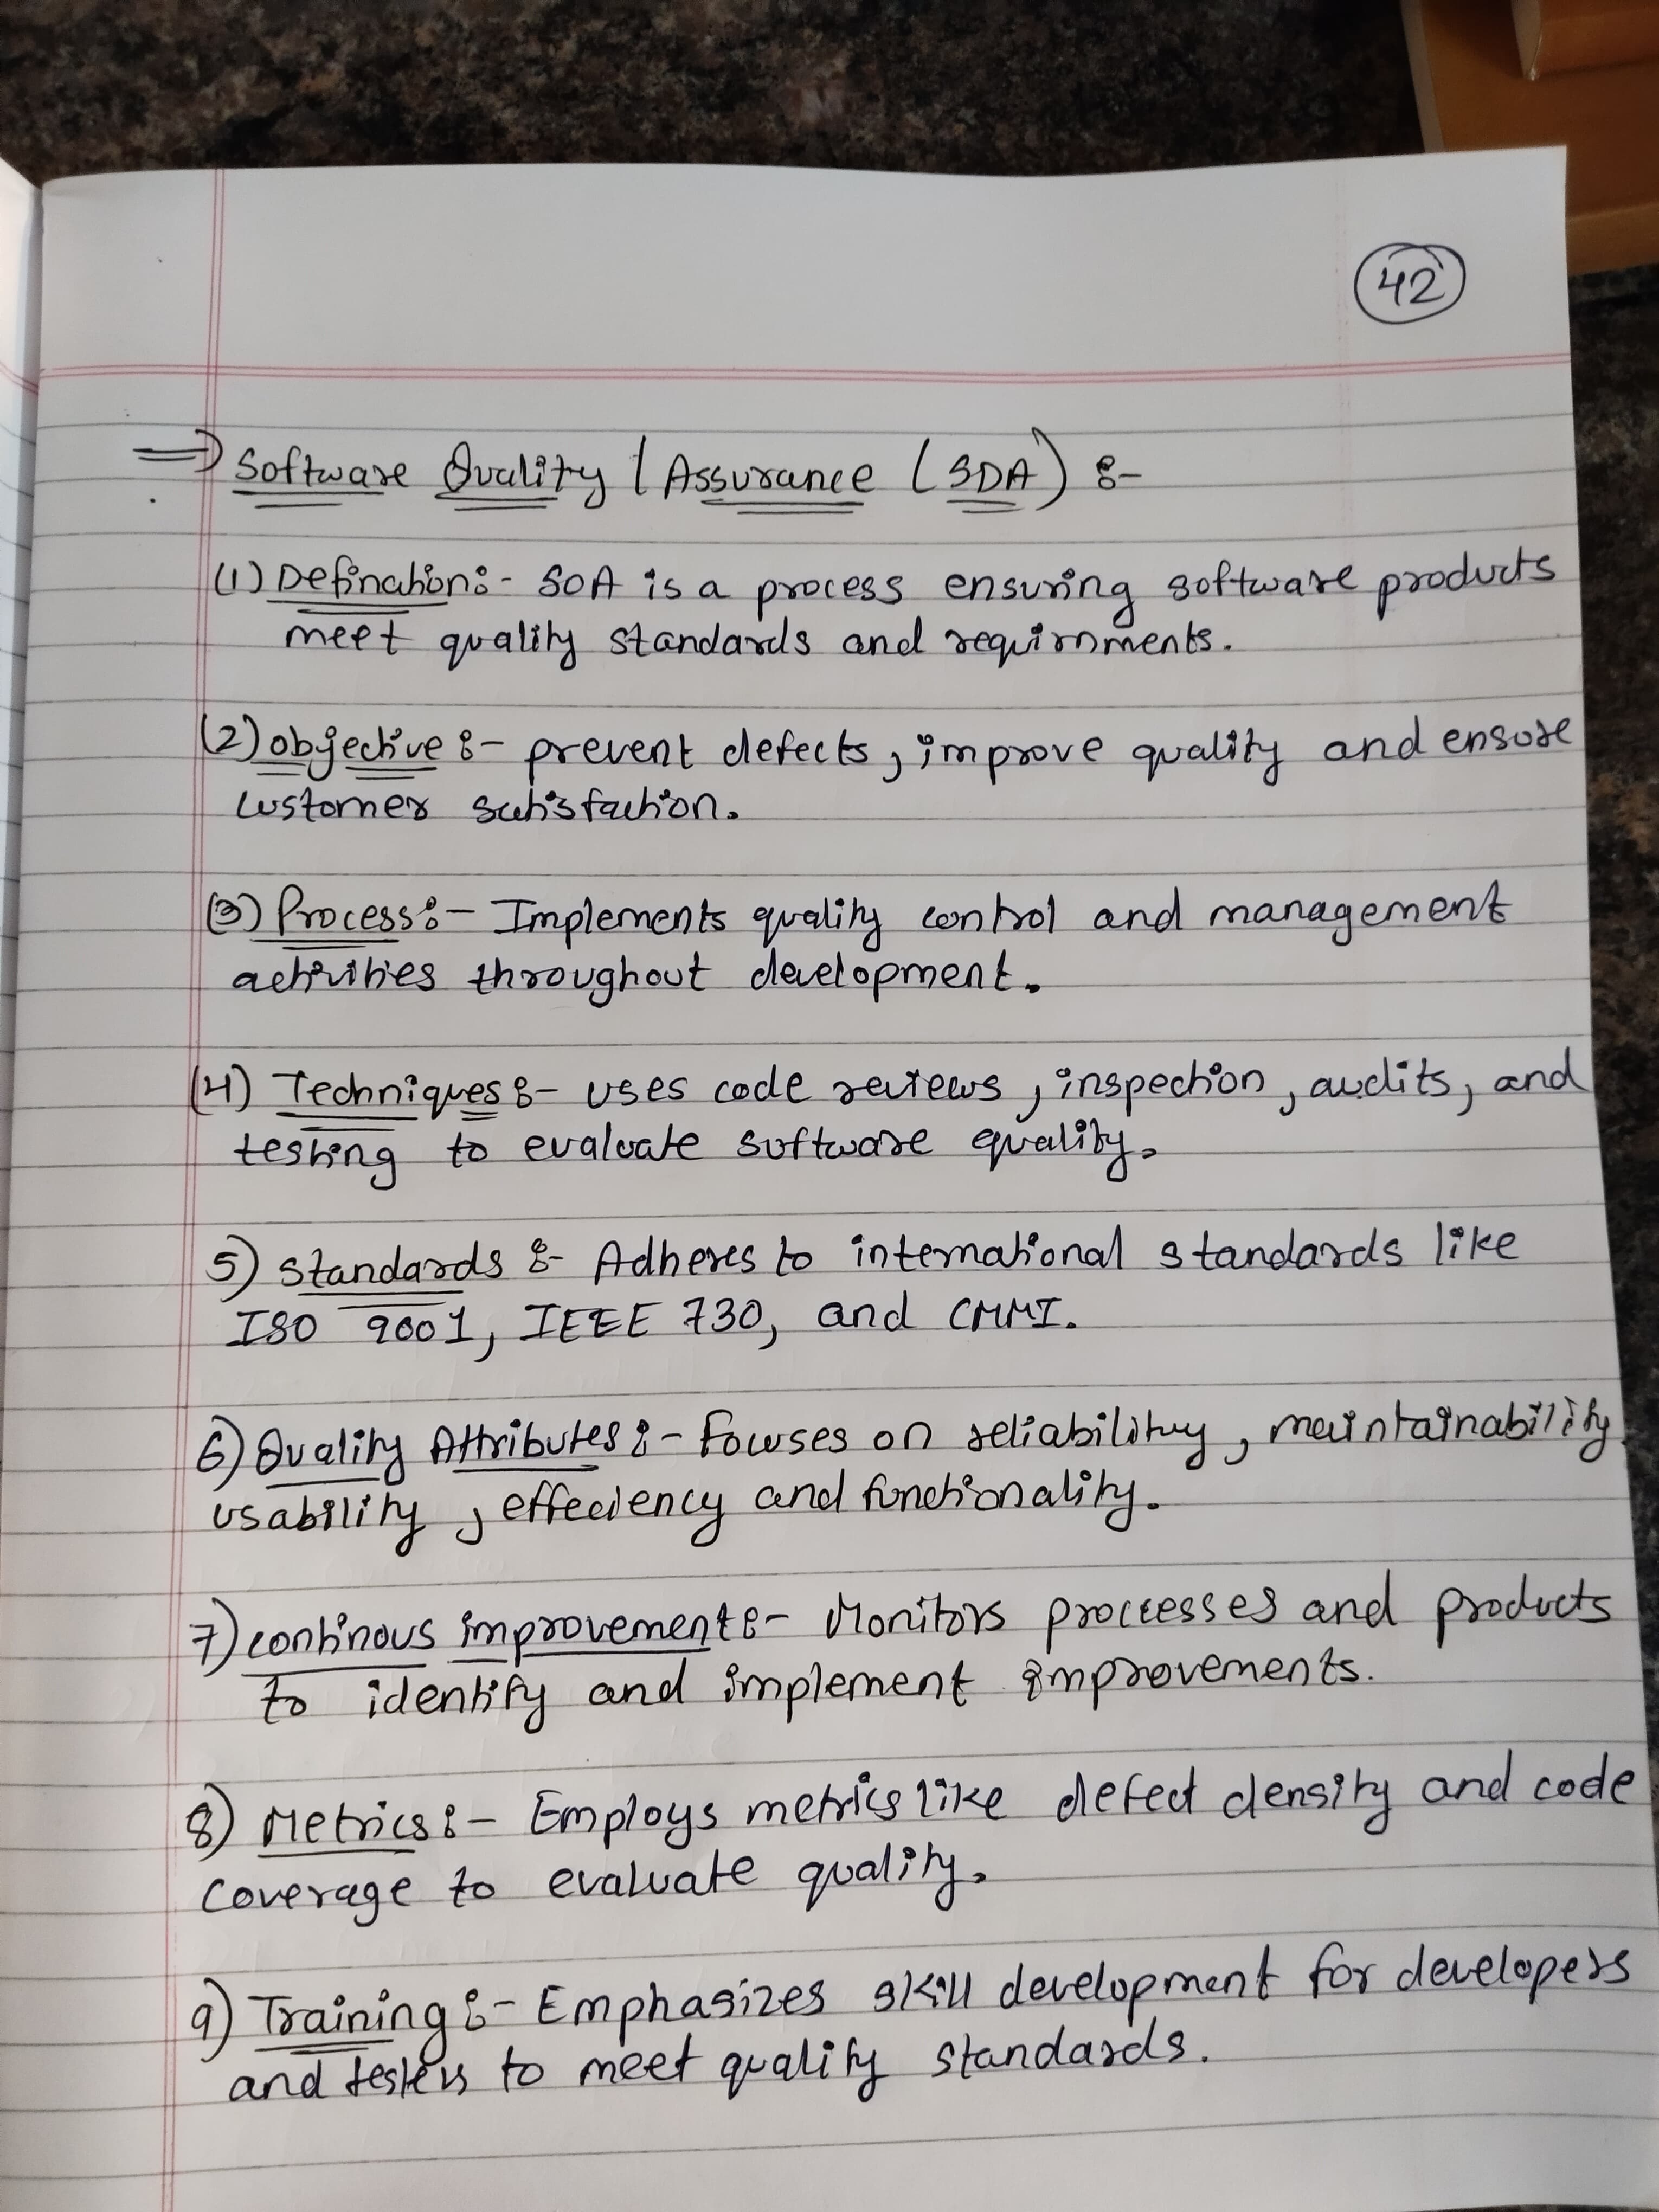 42
=> Software Quality | Assurance (SDA) :-
(1) Defination:- SOA is a process ensuring software products
meet quality standards and requirnments.
(2) objective :- prevent defects, improve quality and ensure
customer satisfaction.
(3) Process:- Implements quality control and management
activities throughout development.
(4) Techniques :- uses code reviews, inspection, audits, and
testing to evaluate software quality.
5) standards :- Adheres to international standards like
ISO 9001, IEEE 730, and CMMI.
6) Quality Attributes :- Focuses on reliabilithy, maintainability
usability, effeciency and functionality.
7) continous improvement :- Monitors proccesses and products
to identify and implement improvements.
8) Metrics :- Employs metrics like defect density and code
coverage to evaluate quality.
9) Training :- Emphasizes skill development for developers
and testers to meet quality standards.